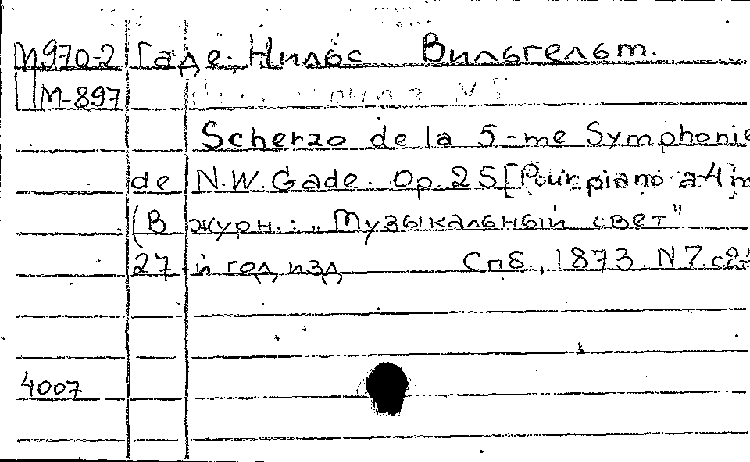 М970-2 Гаде. Нильс Вильгельм.
М-897 N 5
Scherzo de la 5-me Symphonie
de N.W. Gade. Op. 25 [Pour piano a 4 m
(В журн.: „Музыкальный свет"
27 й год изд Спб, 1873 N 7.
4007